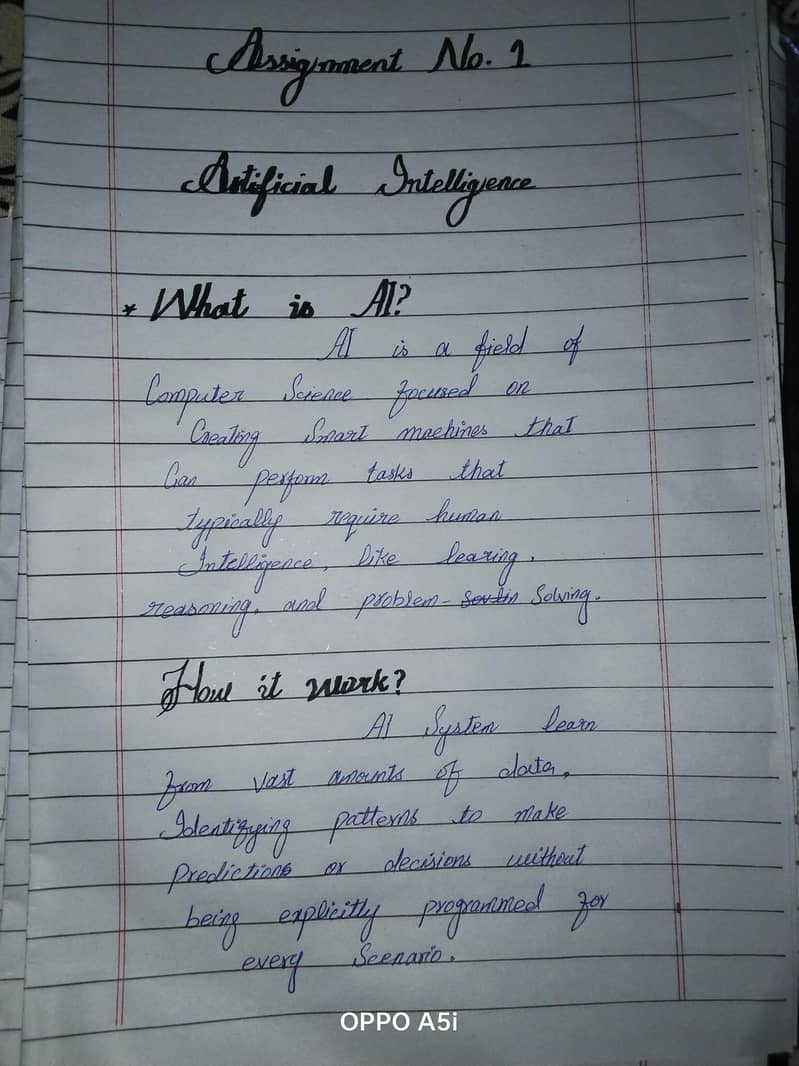 Assignment No. 1
Artificial Intelligence
* What is AI?
AI is a field of
Computer Science focused on
Creating Smart machines that
Can perform tasks that
typically require human
Intelligence, like learing,
reasoning, and problem- Sovlin Solving.
How it work?
AI System learn
from vast amounts of data,
Identifying patterns to make
Predictions or decisions without
being explicitly programmed for
every Scenario.
OPPO A5i